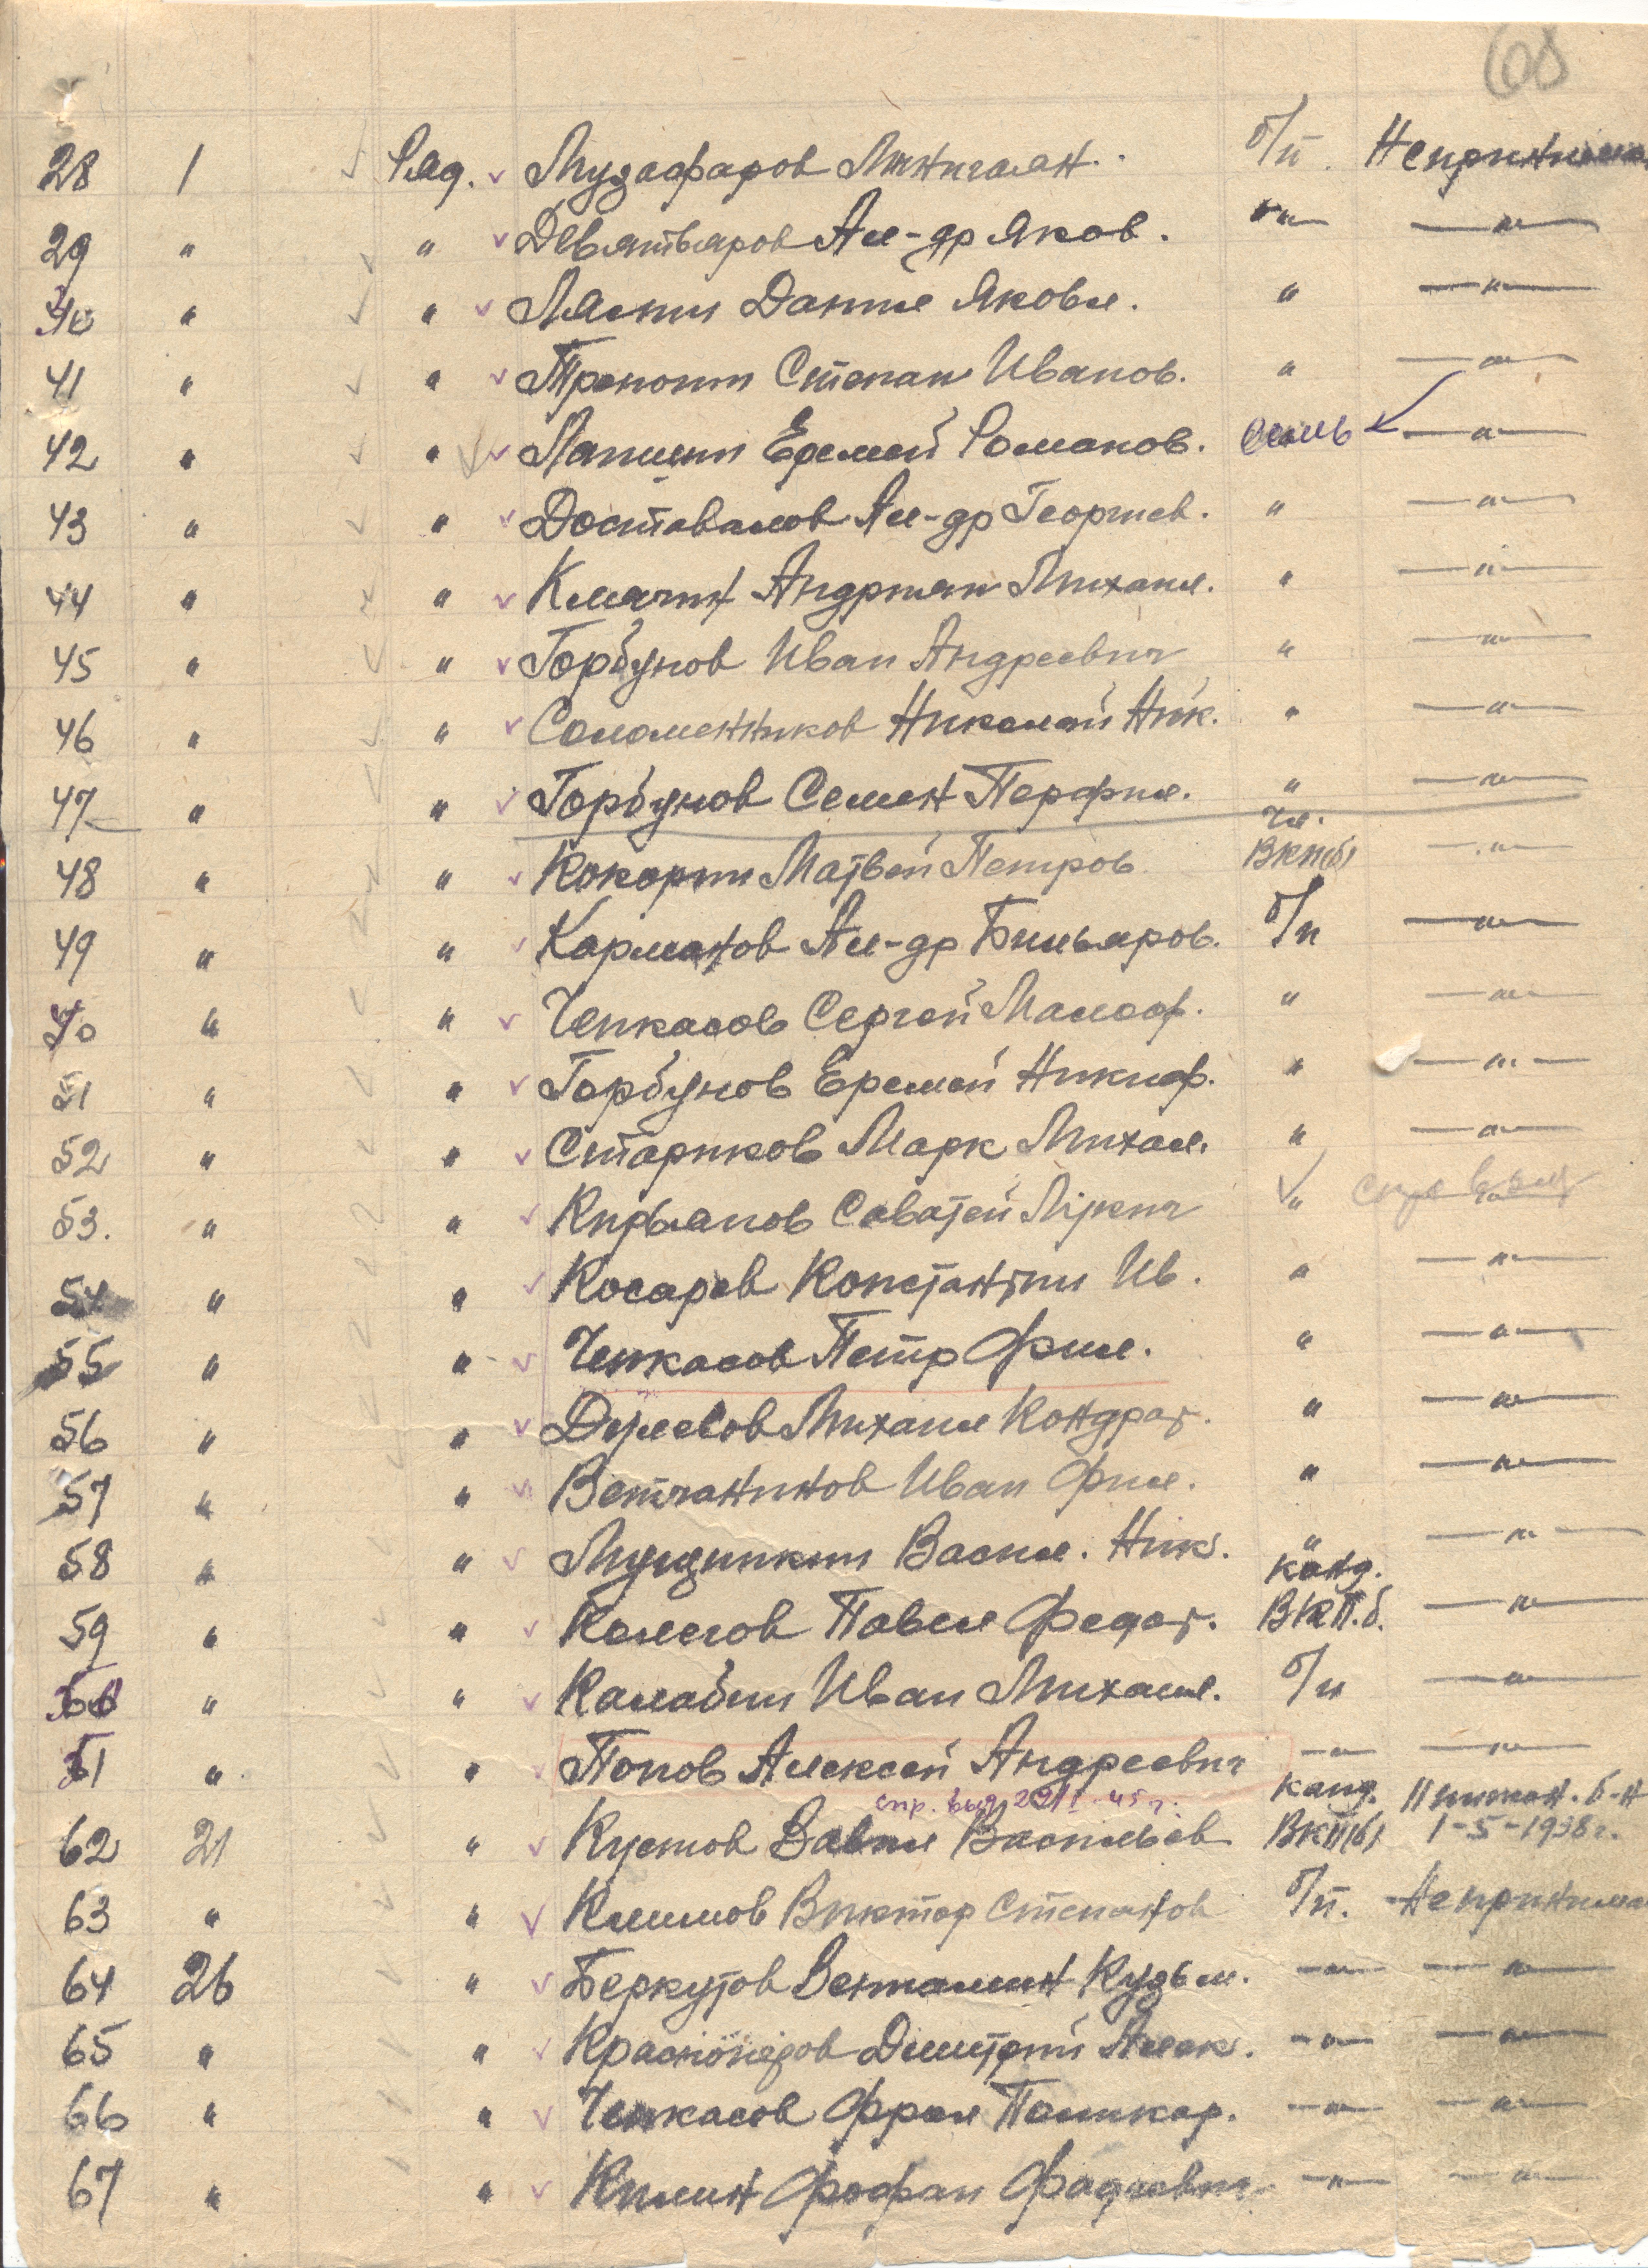 68
28 1 Ряд. Музафаров Минигаян б/п. Неприним
29 " " Девятьяров Ал-др Яков. " —"—
40 " " Лялин Данил Яковл. " —"—
41 " " Степан Иванов. " —"—
42 " " Лапшин Еремей Романов. —"—
43 " " Доставалов Ал-др Георгиев. " —"—
44 " " Клячин Андриян Михаил. " —"—
45 " " Горбунов Иван Андреевич " —"—
46 " " Соломенников Николай Ник. " —"—
47 " " Горбунов Семен Перфил. " —"—
48 " " Кокорин Матвей Петров чл. ВКП(б) —"—
49 " " Карманов Ал-др Бильяров. б/п —"—
50 " " Чепкасов Сергей Малоф. " —"—
51 " " Горбунов Еремей Никиф. " —"—
52 " " Стариков Марк Михал. " —"—
53. " " Кирьянов Саватей "
54 " " Косарев Константин Ив. " —"—
55 " " Чепкасов Петр Фил. " —"—
56 " " Михаил Кондрат. " —"—
57 " " Ветчанинов Иван Фил. " —"—
58 " " Мущинкин Васил. Ник. " —"—
59 " " Колегов Павел Федот. канд. ВКП.б. —"—
60 " " Калабин Иван Михаил. б/п —"—
61 " " Попов Алексей Андреевич —"— —"—
спр. выд 45 г.
62 21 " Кустов Вавил Васильев канд. ВКП(б) б-н 1-5-1938 г.
63 " " Климов Виктор Степанов б/п. Непринима
64 26 " Беркутов Вениамин Кузьм. —"— —"—
65 " " Красноперов Дмитрий Алек. —"— —"—
66 " " Чепкасов Фрол Поликар. —"— —"—
67 " " Килин Фофан Фадеевич —"— —"—